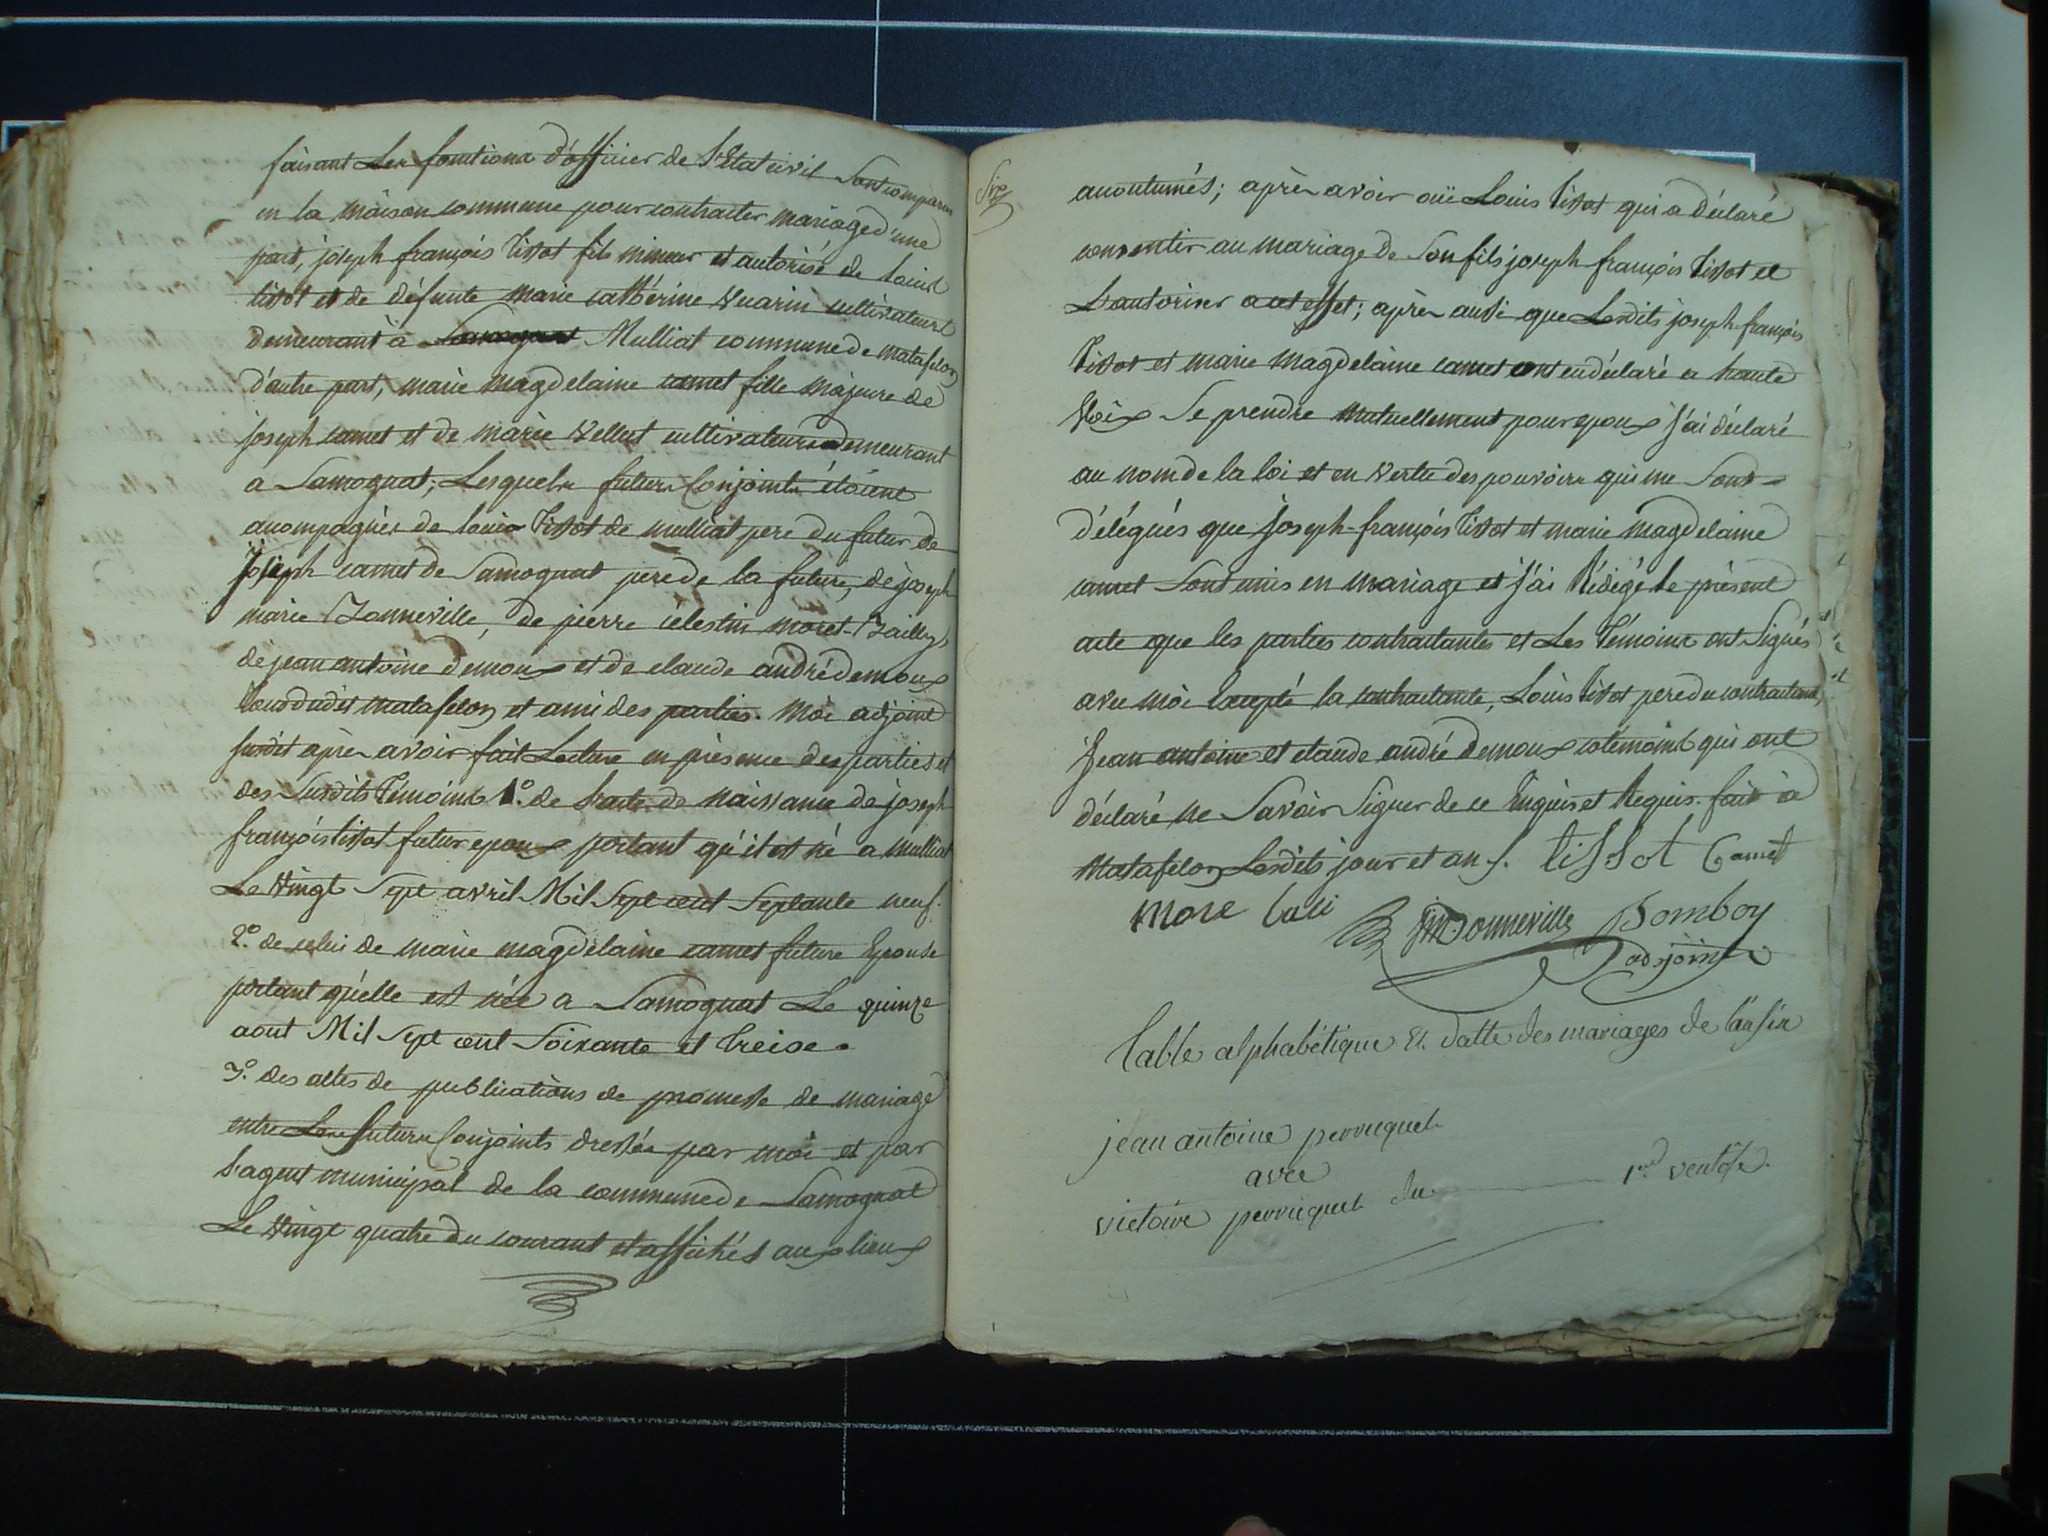 faisant Les fonctions d'officier de L'Etat civil Sont comparus
en la maison commune pour contracter mariage d'une
part, joseph françois Tissot fils mineur et autorisé de Louis
tissot et de défunte marie catherine Vuarin cultivateurs
demeurant à Samognat Mulliat commune de matafelon
d'autre part, marie magdelaine camet fille majeure de
joseph camet et de marie Vellert cultivateurs demeurant
a Samognat; Lesquels futurs Conjoints étoient
acompagnés de louis Tissot de mulliat pere du futur de
Joseph camet de Samognat pere de la future, de joseph
marie Bonneville, de pierre célestin moret-Bailly,
de jean antoine demoux et de claude andré demoux
tous dudit matafelon et amis des parties. Moi adjoint
susdit après avoir fait Lecture en présence des parties et
des Susdits Témoins 1.º de L'acte de Naissance de joseph
françois tissot futur epoux portant qu'il est né a mulliat
Le Vingt Sept avril Mil Sept cent Septante neuf.
2.º de celui de marie magdelaine camet future Epouse
portant qu'elle est née a Samognat Le quinze
aout Mil Sept cent Soixante et Treise.
3.º des actes de publications de promesse de mariage
entre Les futurs Conjoints dressés par moi et par
L'agent municipal de la commune de Samognat
Le Vingt quatre du courant et affichés aux lieux
Six
acoutumés; après avoir ouï Louis Tissot qui a déclaré
consentir au mariage de Son fils joseph françois Tissot et
L'autoriser a cet effet; après aussi que Lesdits joseph françois
Tissot et marie Magdelaine camet ont eu déclaré a haute
Voix Se prendre Mutuellement pour epoux j'ai déclaré
au nom de la loi et en Vertu des pouvoirs qui me Sont
délégués que Joseph-françois Tissot et marie magdelaine
camet Sont unis en mariage et j'ai Rédigé le présent
acte que les parties contractantes et Les Témoins ont Signés
avec moi Excepté la contractante, Louis Tissot pere du contractant,
Jean antoine et claude andré demoux cotémoins qui ont
déclaré ne Savoir Signer de ce Enquis et Requis. fait à
Matafelon Lesdits jour et an. tissot Camet
More bali JM Bonneville Bomboy
adjoint
Table alphabétique Et datte des mariages de l'an six
jean antoine perruquet
avec
victoire perruquet du 1.er ventôse.